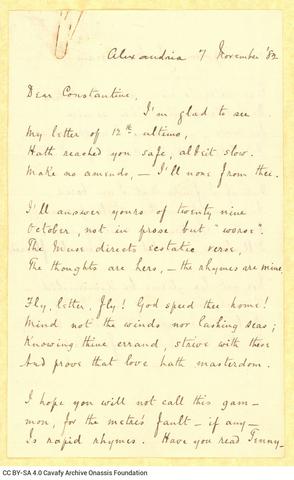 Alexandria 7 November '82
Dear Constantine,
I'm glad to see
My letter of 12th. ultimo,
Hath reached you safe, albeit slow.
Make no amends, — I'll none from thee.
I'll answer yours of twenty nine
October, not in prose but "worse".
The Muse directs ecstatic verse,
The thoughts are hers, — the rhymes are mine.
Fly, letter, fly! God speed thee home!
Mind not the winds nor lashing seas;
Knowing thine errand, strive with these
And prove that love hath masterdom.
I hope you will not call this gam-
mon, for the metre's fault — if any —
Is rapid rhymes. Have you read Tenny-
CC BY-SA 4.0 Cavafy Archive Onassis Foundation